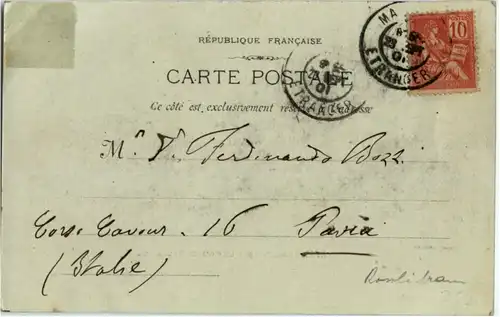 RÉPUBLIQUE FRANÇAISE
CARTE POSTALE
Ce côté est exclusivement réservé à l'adresse
POSTES
10
MA
ETRANGER
01
ETRANGER
01
M. Ferdinando Bozzi
Corso Cavour - 16 Pavia
(Italie)